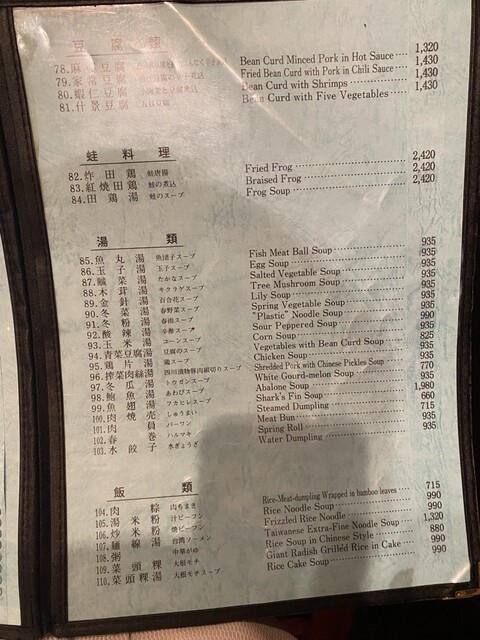 豆腐類
78. 麻婆豆腐 Bean Curd Minced Pork in Hot Sauce 1,320
79. 家常豆腐 Fried Bean Curd with Pork in Chili Sauce 1,430
80. 蝦仁豆腐 Bean Curd with Shrimps 1,430
81. 什景豆腐 Bean Curd with Five Vegetables 1,430
蛙料理
82. 炸田鶏 蛙唐揚 Fried Frog 2,420
83. 紅燒田鶏 蛙の煮込 Braised Frog 2,420
84. 田鶏湯 蛙のスープ Frog Soup 2,420
湯類
85. 魚丸湯 魚団子スープ Fish Meat Ball Soup 935
86. 玉子湯 玉子スープ Egg Soup 935
87. 鹹菜湯 たかなスープ Salted Vegetable Soup 935
88. 木茸湯 キクラゲスープ Tree Mushroom Soup 935
89. 金針湯 百合花スープ Lily Soup 935
90. 冬菜湯 春野菜スープ Spring Vegetable Soup 935
91. 冬粉湯 春雨スープ "Plastic" Noodle Soup 935
92. 酸辣湯 辛酢スープ Sour Peppered Soup 990
93. 玉米湯 コーンスープ Corn Soup 935
94. 青菜豆腐湯 豆腐のスープ Vegetables with Bean Curd Soup 825
95. 鶏片湯 鶏スープ Chicken Soup 935
96. 搾菜肉絲湯 四川漬物豚肉細切りスープ Shredded Pork with Chinese Pickles Soup 770
97. 冬瓜湯 トウガンスープ White Gourd-melon Soup 935
98. 鮑魚湯 あわびスープ Abalone Soup 935
99. 魚翅湯 フカヒレスープ Shark's Fin Soup 1,980
100. 肉焼売 しゅうまい Steamed Dumpling 660
101. 肉員 バーワン Meat Bun 715
102. 春巻 ハルマキ Spring Roll 935
103. 水餃子 水ぎょうざ Water Dumpling 935
飯類
104. 肉粽 肉ちまき Rice-Meat-dumpling Wrapped in bamboo leaves 715
105. 湯米粉 汁ビーフン Rice Noodle Soup 990
106. 炒米粉 焼ビーフン Frizzled Rice Noodle 990
107. 麺線湯 台湾ソーメン Taiwanese Extra-Fine Noodle Soup 1,320
108. 粥 中華がゆ Rice Soup in Chinese Style 880
109. 菜頭粿 大根モチ Giant Radish Grilled Rice in Cake 990
110. 菜頭粿湯 大根モチスープ Rice Cake Soup 990